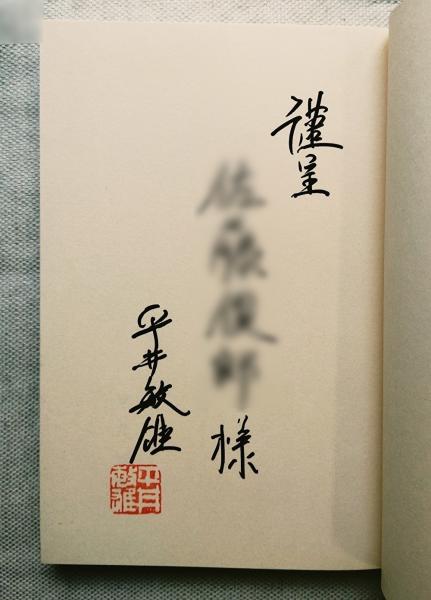 謹呈
様
平井敏雄
平井
敏雄